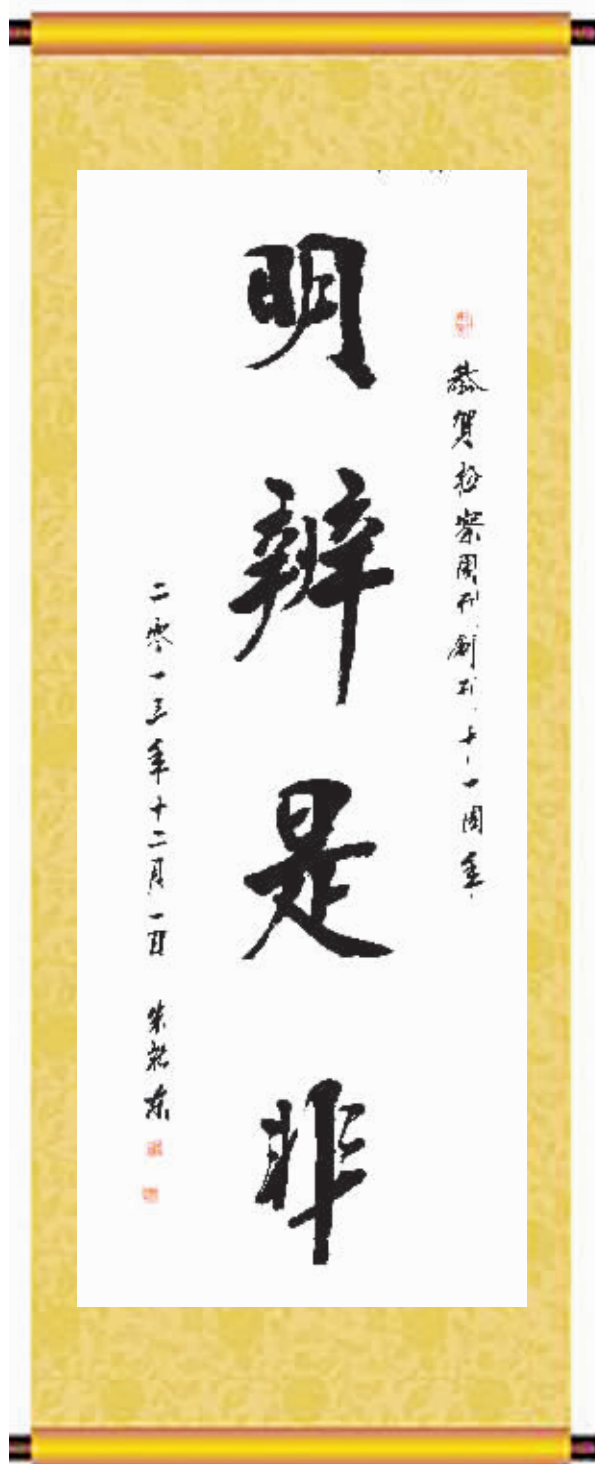 恭賀检察周刊創刊十一周年
明辨是非
二零一三年十二月一日 朱